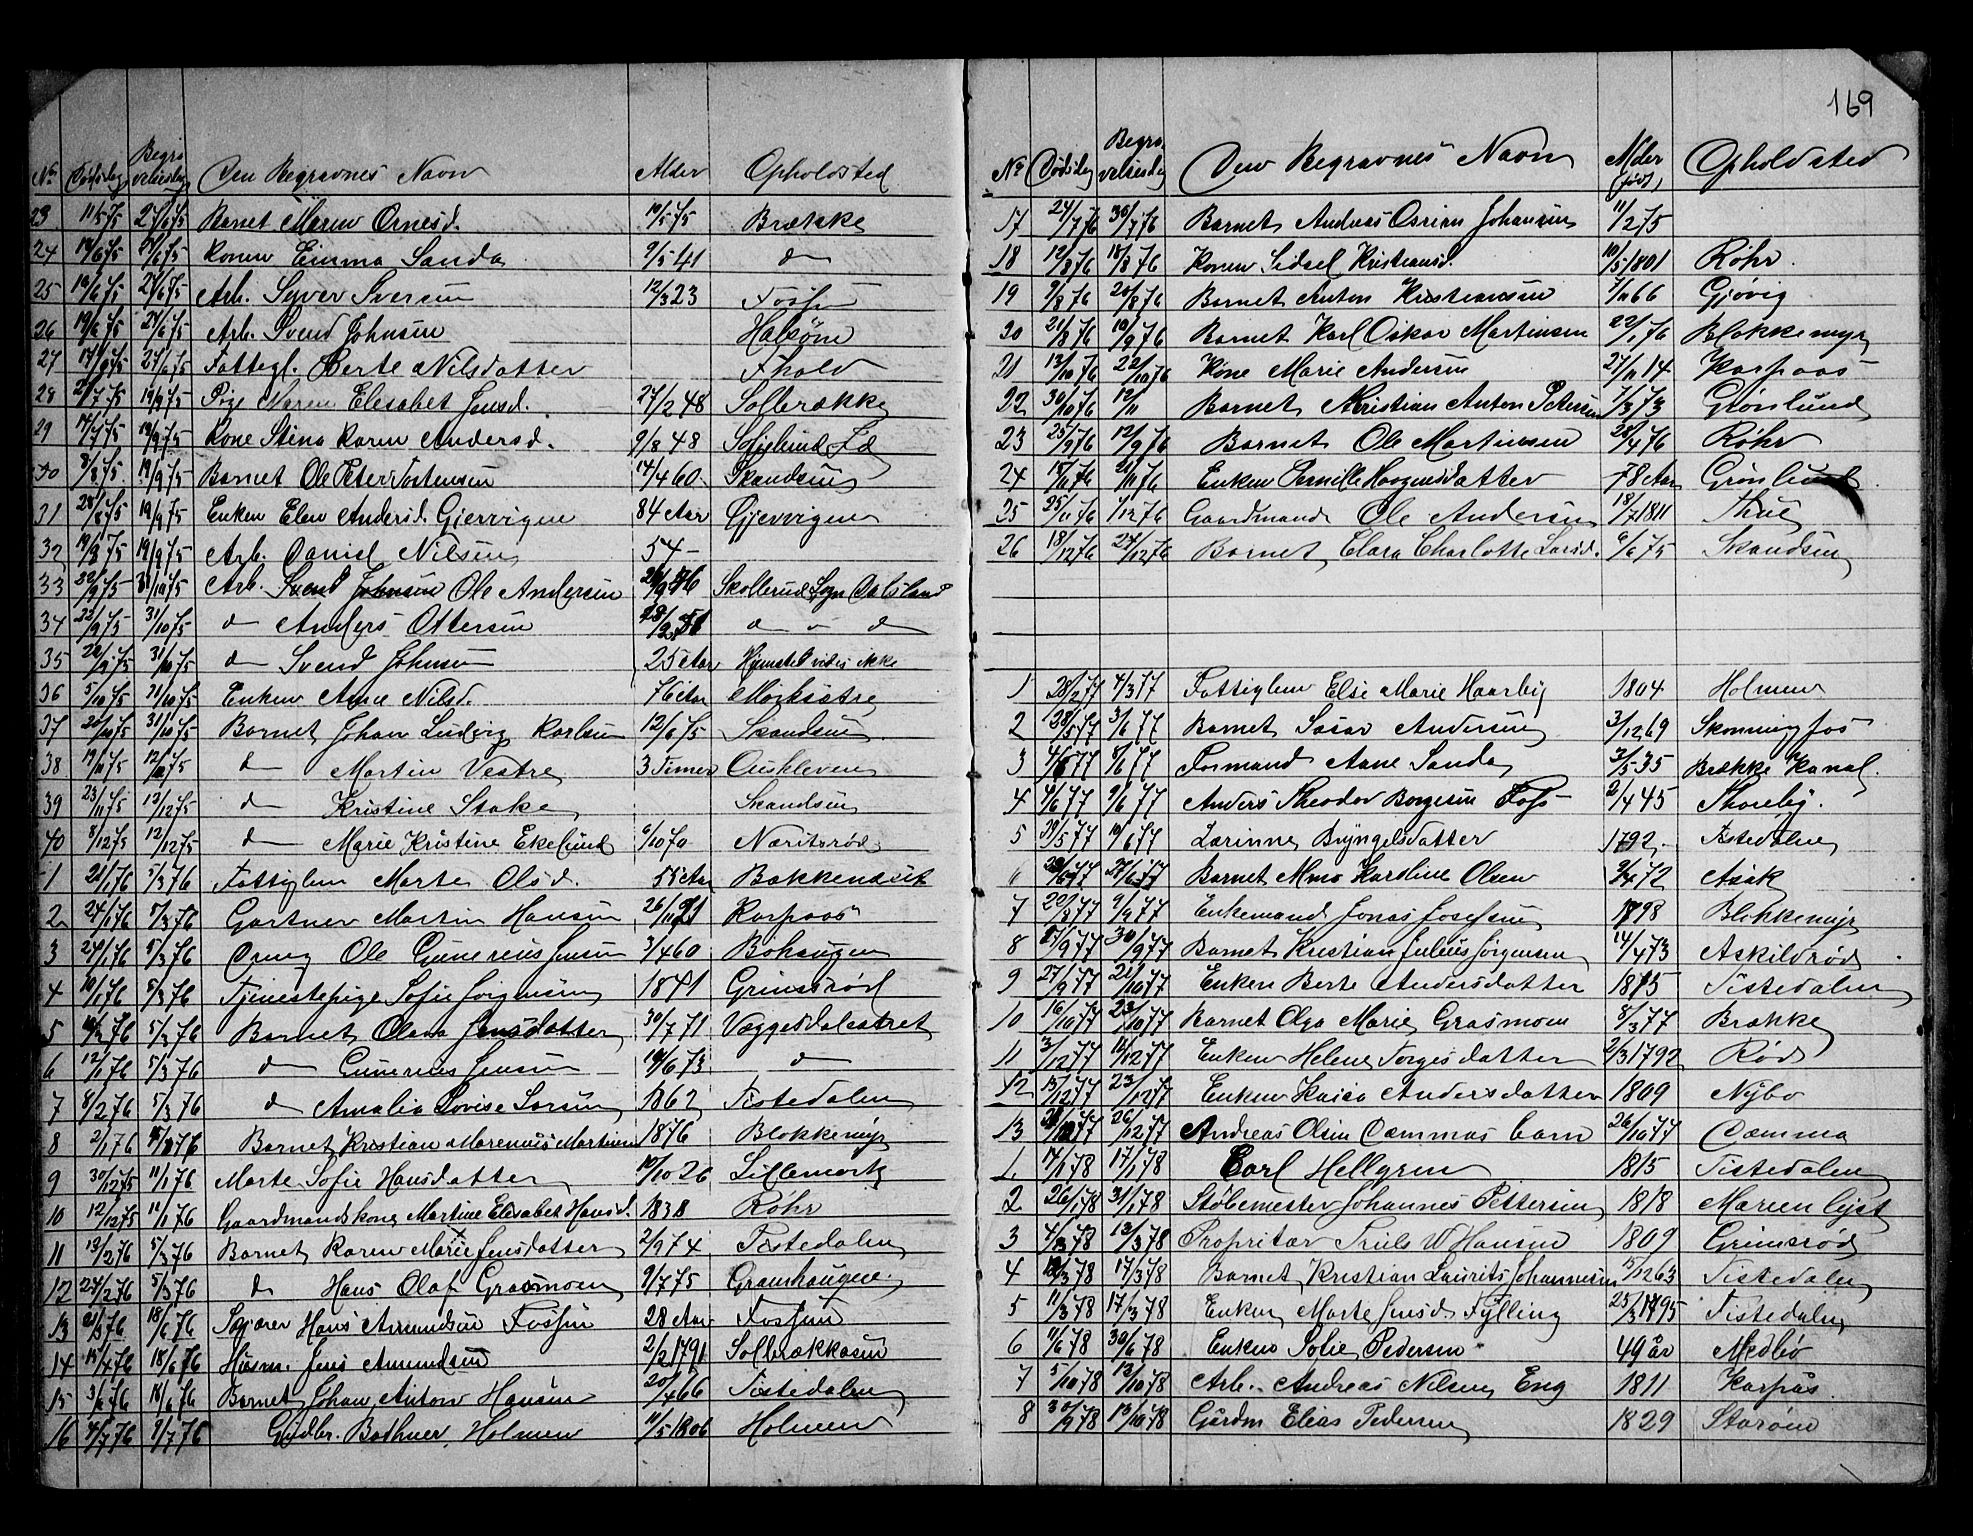 No Dødsdag Begravelsesdag Den Begravnes Navn Alder Opholdsted
23 11/5 75 27/6 75 Barnet Maren Ornesd. 19/5 75 Brække
24 Konen Emma Sanda 9/5 41 d
25 Arb. Syver Sversen 12/3 23 Fosse
26 19/6 75 27/6 75 Arb. Svend Johnsen
27 Fattigl. Berte Nilsdatter
28 19/9 75 Pige Karen Elisabet Jensd. 27/2 48 Solbrække
29 19/9 75 Kone Stina Karen Andersd. 9/8 48
30 8/8 75 19/9 75 Barnet Ole Peter Tostensen 14/4 60 Skandsen
31 28/8 75 19/9 75 Enken Elen Andersd. Gjervigen 84 Aar Gjervigen
32 19/8 75 19/9 75 Arb. Daniel Nilsen 54 –
33 22/9 75 31/10 75 Arb. Svend Johnsen Ole Andersen Skollerud Sogn Dalsland
34 22/9 75 31/10 75 d Anders Ottersen d d
35 22/9 75 31/10 75 d Svend Johnsen 25 Aar Hjemsted vides ikke
36 5/10 75 31/10 75 Enken Anne Nilsd. 76 Aar Morksætre
37 31/10 75 Barnet Johan Ludvig Karlsen 12/6 75 Skandsen
38 19/11 75 d Martin Vestre 3 Timer Auskleven
39 23/11 75 12/12 75 d Kristine Stake Skandsen
40 8/12 75 12/12 75 d Marie Kristine Ekelund 6/10 70
1 21/1 76 5/3 76 Fattiglem Marte Olsd. 55 Aar Bakkenæset
2 24/1 76 5/3 76 Gartner Martin Hansen Karpaas
3 24/1 76 5/3 76 Dreng Ole Gunerius Jensen 3/4 60 Bohaugen
4 10/1 76 5/3 76 Tjenestepige Sofie Jørgensen 1841 Grimsrød
5 5/3 76 Barnet Olava Jensdatter 30/7 71 Væggesdalsætret
6 12/1 76 5/3 76 d Gunerius Jensen 14/6 73 d
7 8/2 76 5/3 76 d Amalia Lovise Larsen 1862 Tistedalen
8 2/1 76 Barnet Kristian Marenius Martinsen 1876 Blokkemyr
9 30/12 75 11/1 76 Marte Sofie Hansdatter 10/10 26 Lillemork
10 12/12 75 11/1 76 Gaardmandskone Martine Elisabet Hansd. 1838 Røhr
11 13/2 76 5/3 76 Barnet Karen Marie Jensdatter 2/9 74 Tistedalen
12 24/2 76 5/3 76 d Hans Olaf Grasmoen 9/7 75 Granhaugene
13 18/6 76 Hans Amundsen Fossen 28 Aar Fossen
14 15/4 76 18/6 76 Husm. Jens Amundsen 2/2 1791 Solbrækkasen
15 3/6 76 18/6 76 Barnet Johan Anton Hansen 20/4 66 Tistedalen
16 9/7 76 Gudbr. Bothner, Holmen 11/5 1806 Holmen
169
No Dødsdag Begravelsesdag Den Begravnes Navn Alder (født) Opholdsted
17 24/7 76 30/7 76 Barnet Andreas Ossian Johansen 11/2 75
18 12/8 76 18/8 76 Konen Sidsel Kristiansd. 10/5 1801 Røhr
19 9/8 76 20/8 76 Barnet Anton Kristiansen 7/11 66 Gjøvig
20 21/8 76 10/9 76 Barnet Karl Oskar Martinsen 22/1 76 Blokkemyr
21 13/10 76 22/10 76 Kone Marie Andersen 27/11 14 Karpaas
22 30/10 76 12/11 Barnet Kristian Anton Petersen 7/3 73 Grønlund
23 12/9 76 Barnet Ole Martinsen 28/4 76 Røhr
24 Enken Pernille Haagensdatter 78 Aar Grønlund
25 25/11 76 1/12 76 Gaardmand Ole Andersen 18/7 1811 Thue
26 18/12 76 24/12 76 Barnet Clara Charlotte Larsd. 6/6 75 Skandsen
1 28/2 77 4/3 77 Fattiglem Else Marie Haarby 1804 Holmen
2 28/5 77 3/6 77 Barnet Andersen 3/12 69 Skonningfos
3 8/6 77 Formand Aane Sanda 3/5 35 Brække Kanal.
4 4/6 77 9/6 77 Anders Theodor Borgesen Foss 2/4 45 Thoreby.
5 10/6 77 Larinne Bryngelsdatter 1792 Tistedalen
6 Barnet Karoline Olsen Asak
7 9/9 77 Enkemand Jonas Josefsen 1798 Blokkemyr
8 30/9 77 Barnet Kristian Julius Jørgensen 14/4 73 Askildrød
9 27/9 77 21/10 77 Enken Berte Andersdatter Tistedalen
10 16/10 77 23/10 77 Barnet Olga Marie Grasmoen 8/3 77 Brække
11 3/12 77 16/12 77 Enken Helene Torgesdatter 2/3 1792 Rød
12 13/12 77 23/12 77 Enken Kaisa Andersdatter 1809 Nybo
13 26/12 77 Andreas Olsen Dammas barn 26/10 77 Damma
1 14/1 78 17/1 78 Carl Hellgren 1815 Tistedalen
2 26/1 78 31/1 78 Støbemester Johannes Pettersen 1818 Marienlyst
3 4/3 78 12/3 78 Propritær Truls W Hansen 1809 Grimsrød
4 17/3 78 Barnet Kristian Laurits Johannesen 5/12 63 Tistedalen
5 11/3 78 17/3 78 Enken Marte Jensd. Fylling 25/3 1795 Tistedalen
6 11/6 78 30/6 78 Enken Sofie Pedersen 49 år Medbø
7 5/10 78 13/10 78 Arb. Andreas Nilsen Eng 1811 Karpås
8 30/9 78 13/10 78 Gårdm Elias Pedersen 1829 Storøen